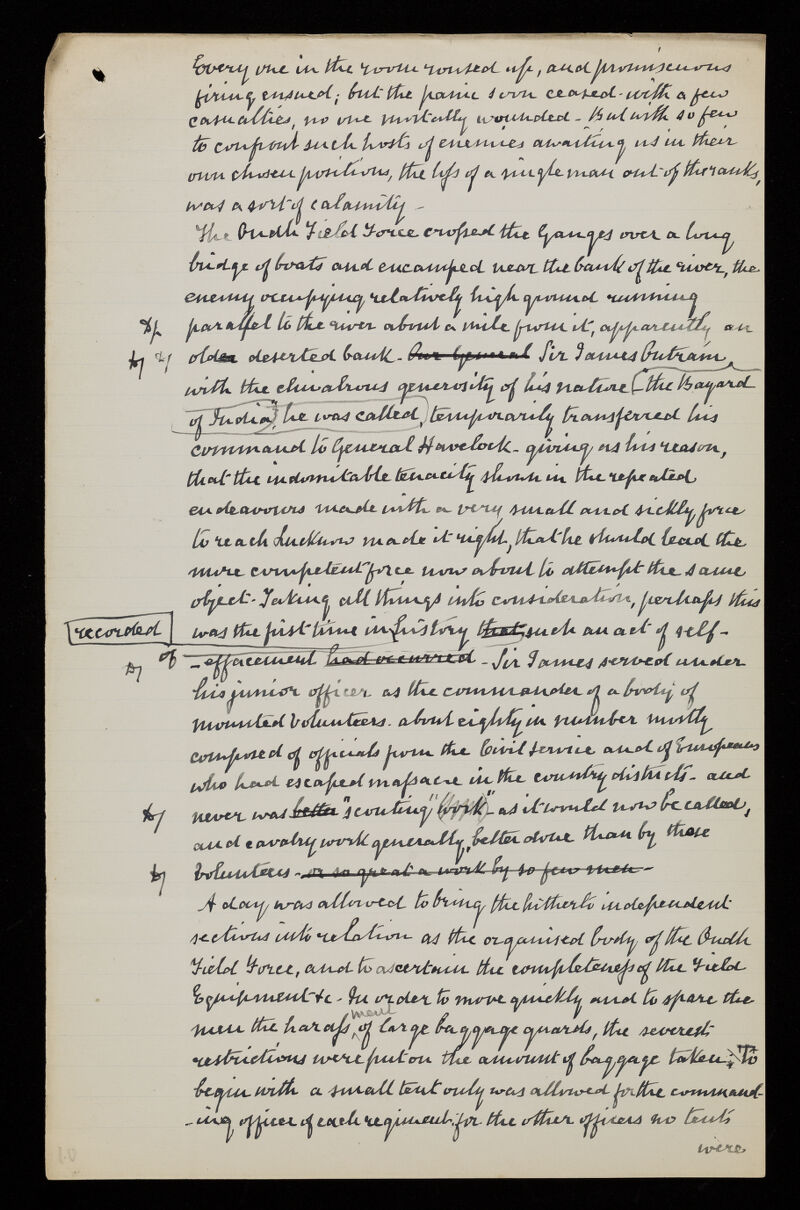 Every one in the room roused up, and promiscuous
firing ensued; but the panic soon ceased with a few
casualties, no one mortally wounded - But with so few
to confront such hosts of enemies awaiting us in their
own chosen positions, the loss of a single man out of the ranks,
was a sort of calamity -
The Oudh Field Force crossed the Ganges over a long
bridge of boats and encamped near the bank of the river, the
enemy occupying relatively high ground running
parallel to the river about a mile from it, apparently an
older deserted bank - Our General Sir James Outram,
with the chivalrous generosity of his nature ("the Bayard
of India", he was called), temporarily transferred his
command to General Havelock - giving as his reason,
that the indomitable tenacity shown in the repeated
endeavours made with a very small and sickly force
to reach Lucknow made it right, that he should lead the
more competent force now about to attempt the same
object - Taking all things into consideration, perhaps this
recorded
was the first time in history that such an act of self-
of - effacement had occurred - Sir James served under
his junior officer as the commander of a body of
mounted volunteers - about eighty in number mostly
composed of officials from the Civil Service and of Europeans
who had escaped massacre in the country districts - and
never was better "scouting" work - as it would now be called,
and cavalry work generally, better done than by these
Volunteers - or so great a work by so few men -
A day was allowed to bring the hitherto independent
sections into relation as the organised body of the Oudh
Field Force, and to ascertain the completeness of the Field
Equipment &c - In order to move quickly and to spare the
ment
men the harass of large baggage guards, the severest
restrictions were put on the amount of baggage taken; To
begin with a small tent only was allowed for the command-
-ing officer of each regiment; for the other officers no tents
were